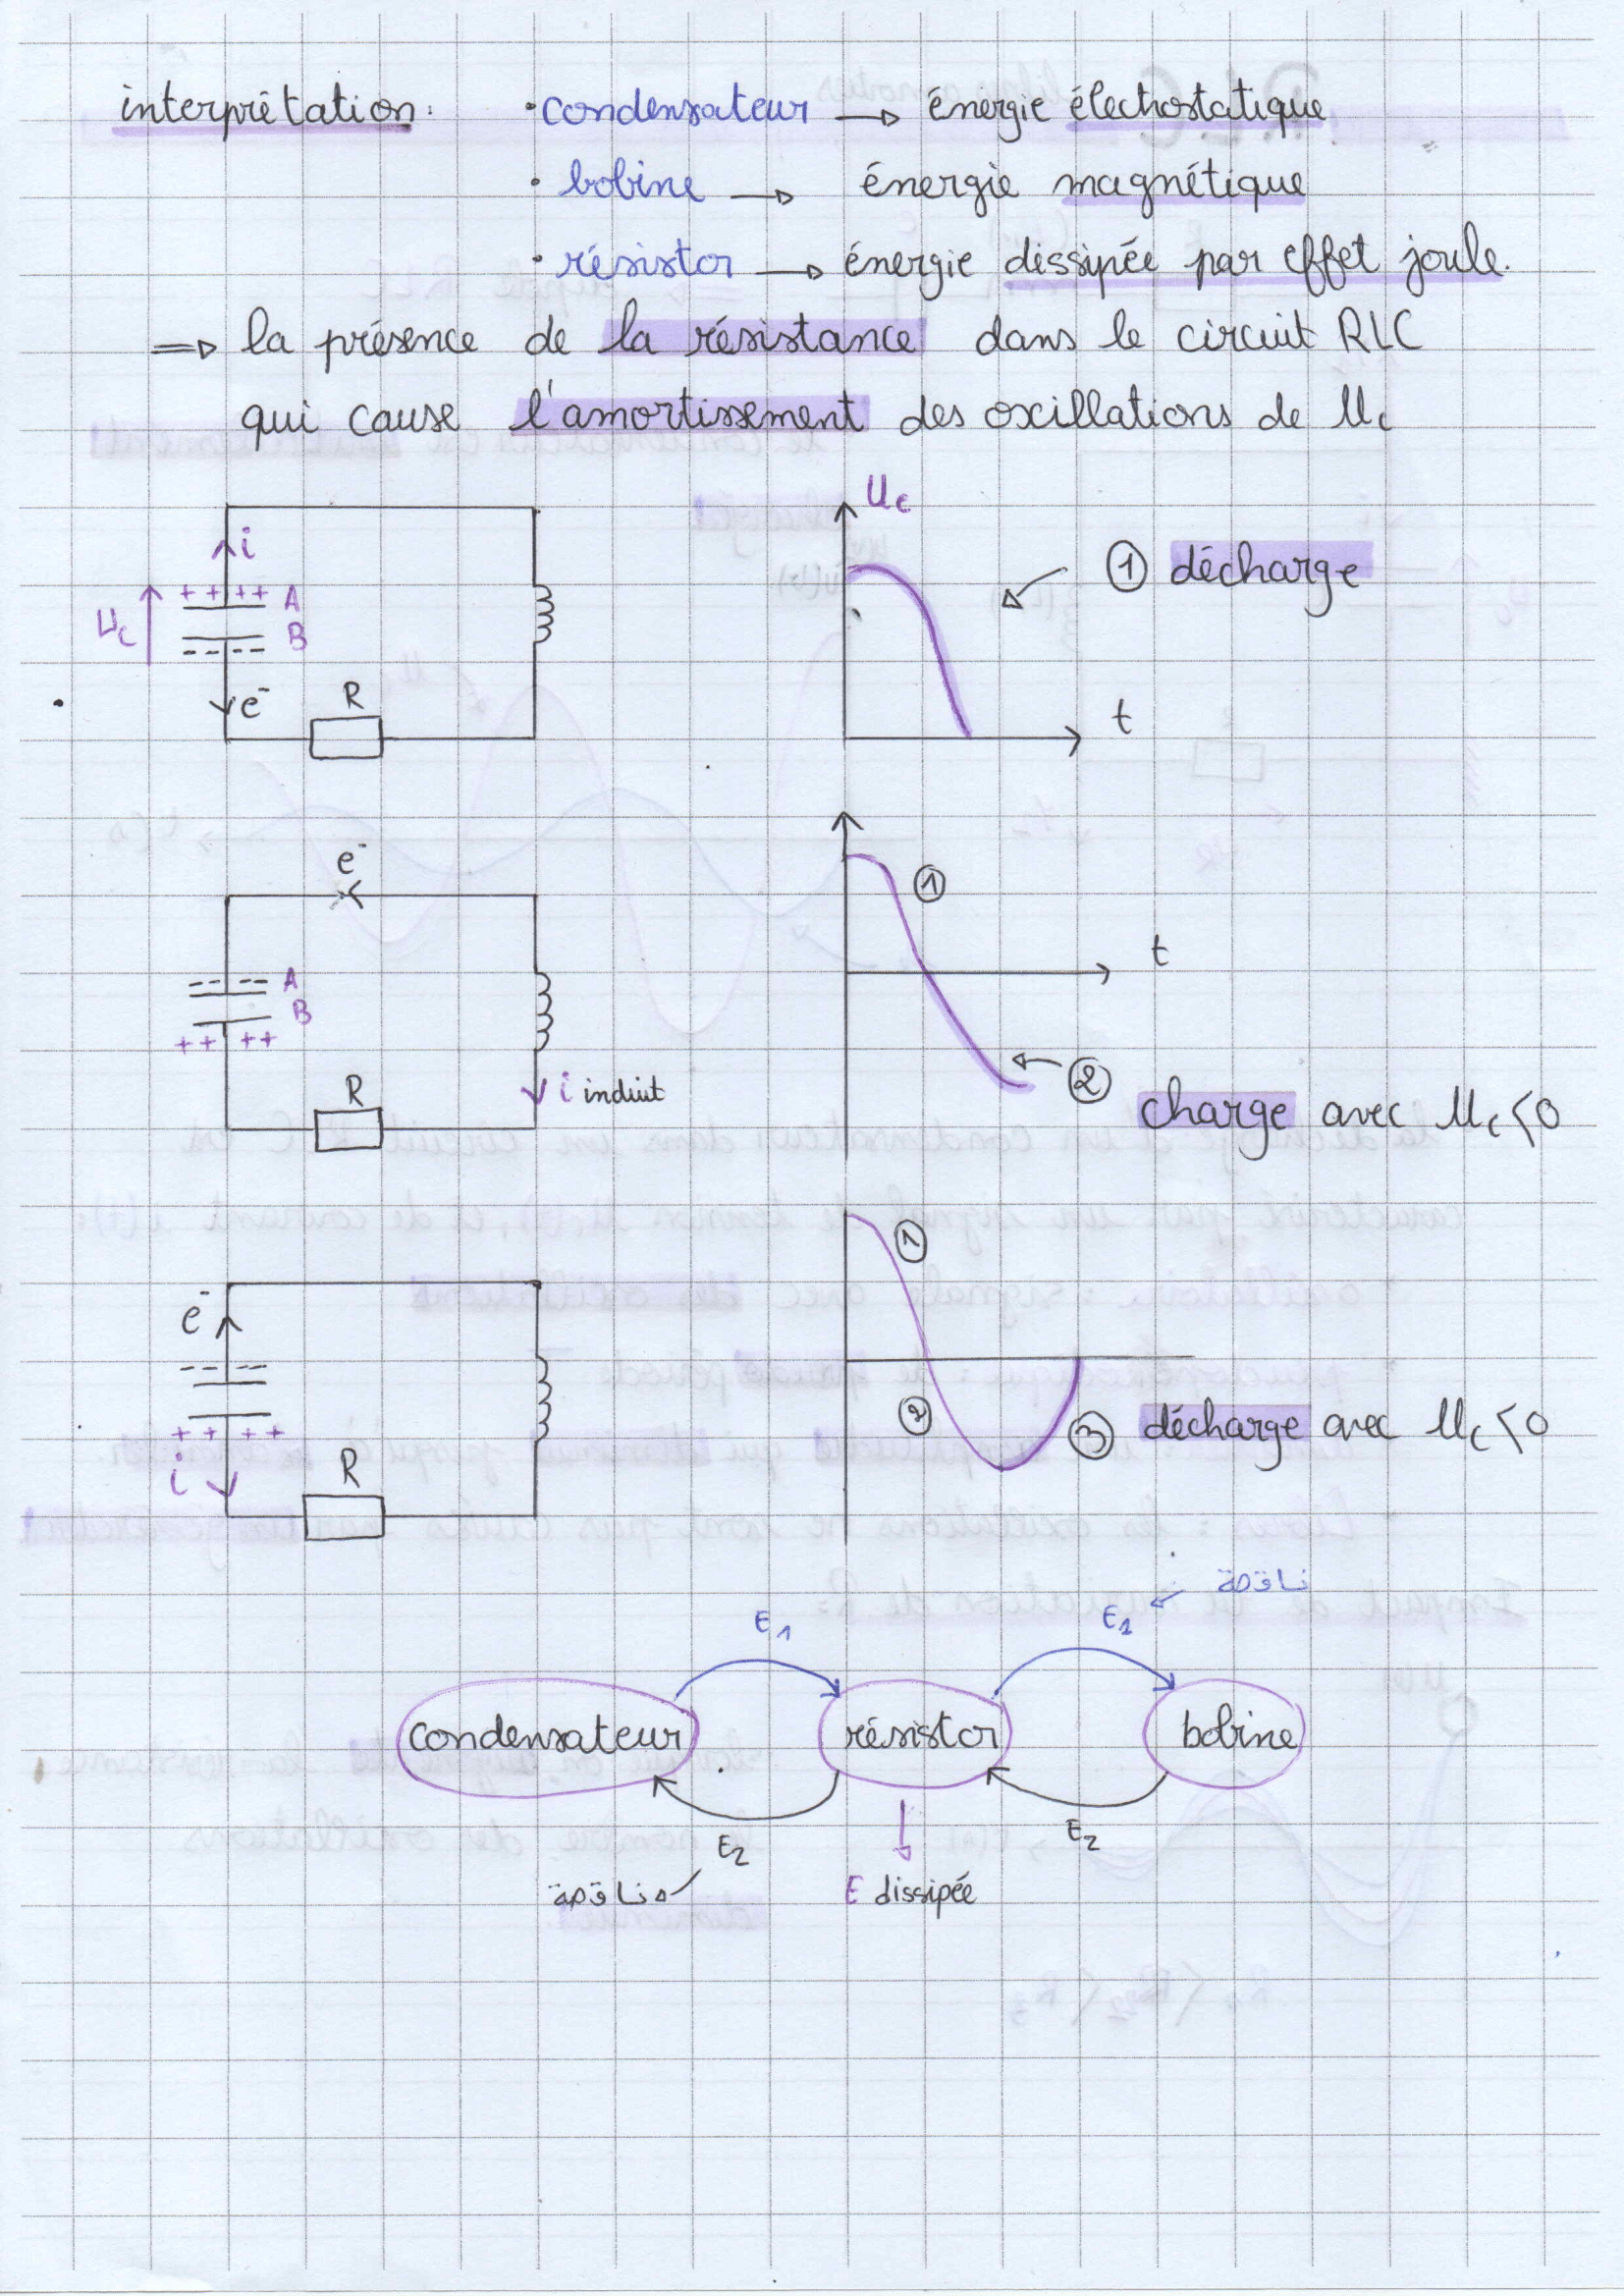 interprétation: · condensateur → énergie électrostatique
· bobine → énergie magnétique
· résistor → énergie dissipée par effet joule.
⇒ la présence de la résistance dans le circuit RLC
qui cause l'amortissement des oscillations de Uc
Uc
i
① décharge
+ + + + A
Uc
B
- - - -
e⁻
R
t
e⁻
①
t
- - - - A
B
+ + + +
i induit
②
R
charge avec Uc < 0
①
e⁻
- - - -
+ + + +
②
③ décharge avec Uc < 0
i
R
ناقصة
E1
E1
condensateur
résistor
bobine
E2
E2
ناقصة
E dissipée